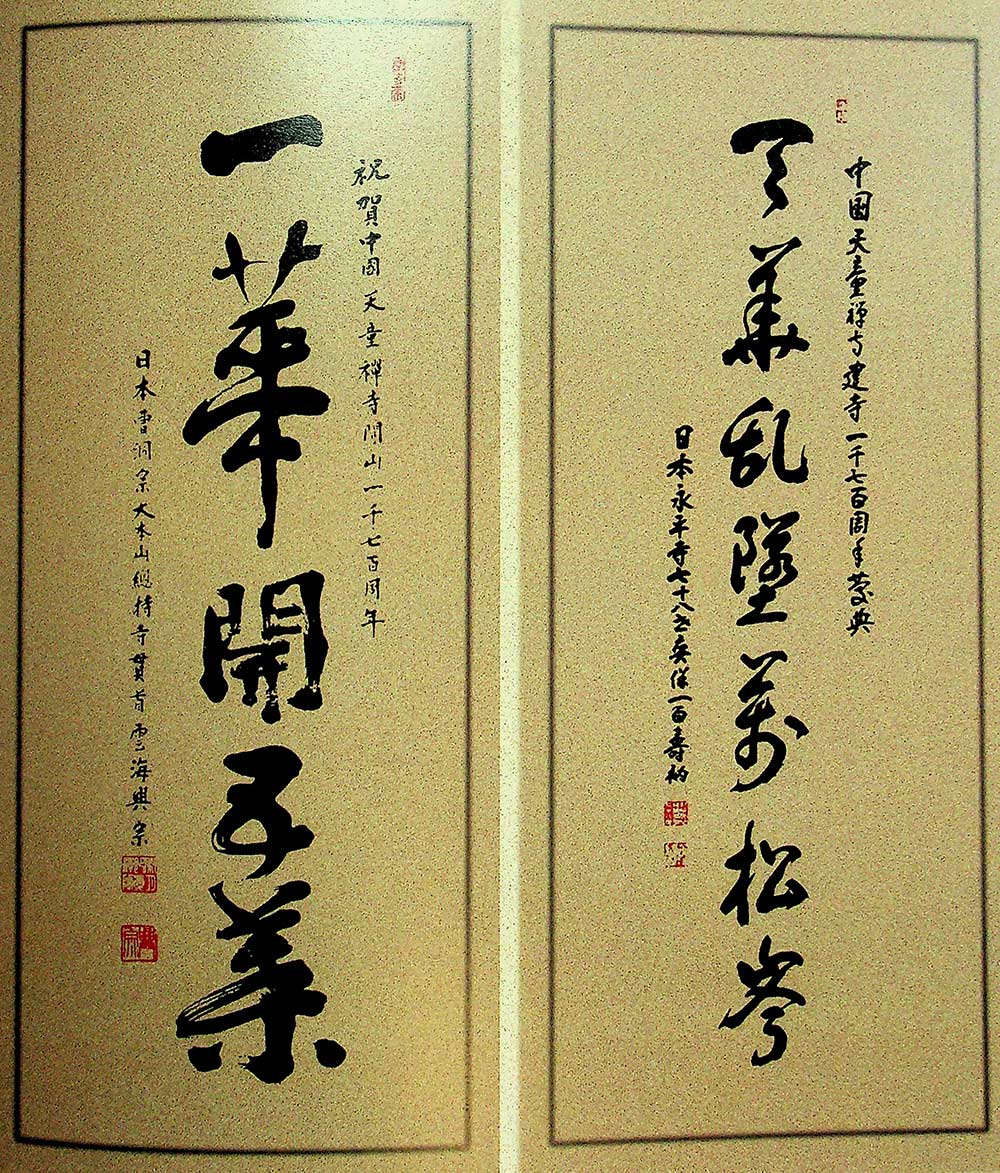 中国天童禅寺建寺一千七百周年慶典
天華乱墜萬松岑
日本永平寺七十八世奕保一百壽衲
祝賀中国天童禅寺開山一千七百周年
一華開五葉
日本曹洞宗大本山總持寺貫首雲海興宗